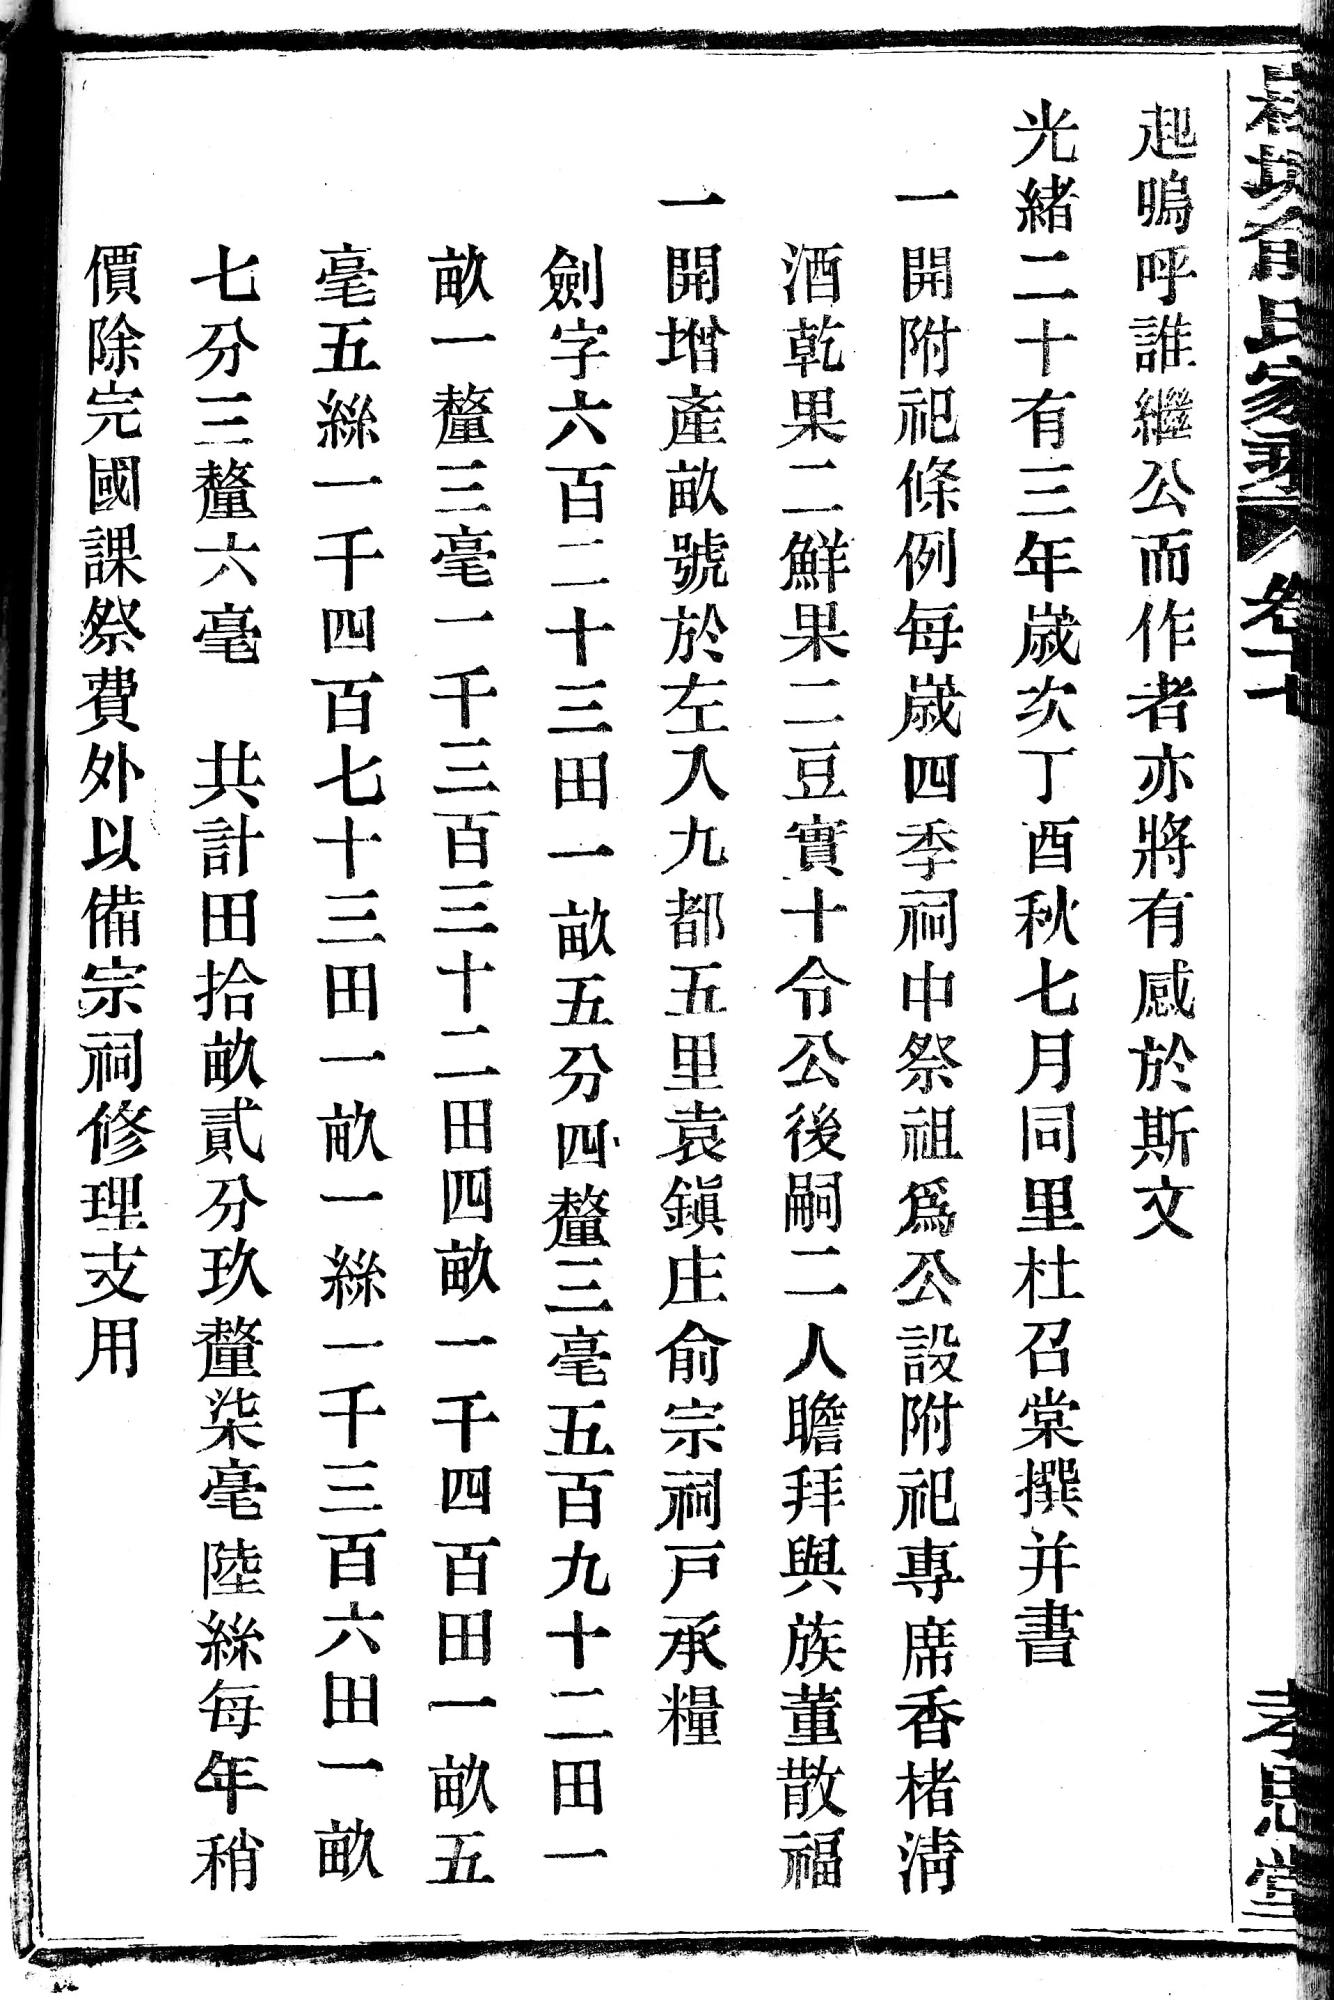 起嗚呼誰繼公而作者亦將有感於斯文
光緒二十有三年歲次丁酉秋七月同里杜召棠撰并書
一開附祀條例每歲四季祠中祭祖爲公設附祀專席香楮淸
酒乾果二鮮果二豆實十令公後嗣二人瞻拜與族董散福
一開增產畝號於左入九都五里袁鎭庄俞宗祠戸承糧
劍字六百二十三田一畝五分四釐三毫五百九十二田一
畝一釐三毫一千三百三十二田四畝一千四百田一畝五
毫五絲一千四百七十三田一畝一絲一千三百六田一畝
七分三釐六毫　共計田拾畝貳分玖釐柒毫陸絲每年稍
價除完國課祭費外以備宗祠修理支用
俞氏家乘
卷十七
孝思堂